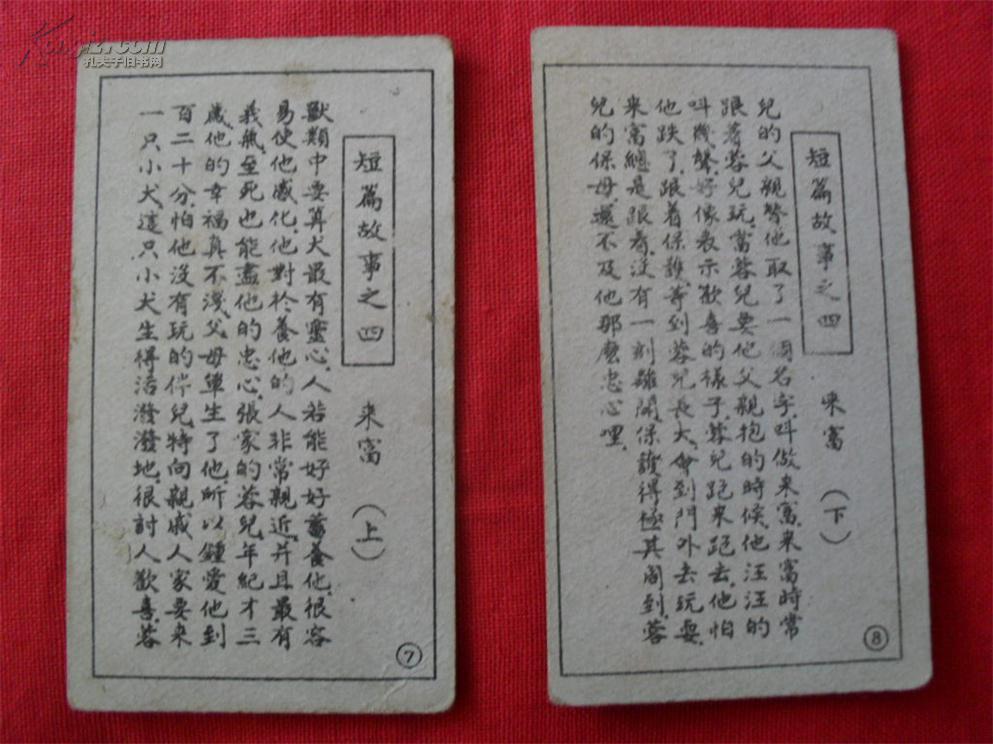 Kongfz.com
孔夫子旧书网
短篇故事之四
来富
（上）
獸類中要算犬最有靈心.人若能好好蓄養他.很容
易使他感化.他對於養他的人非常親近.并且最有
義氣.至死也能盡他的忠心.張家的蓉兒.年紀才三
歲.他的幸福真不淺.父母單生了他.所以鍾愛他到
百二十分.怕他沒有玩的伴兒.特向親戚人家要来
一只小犬.這只小犬生得活潑潑地.很討人歡喜.蓉
7
短篇故事之四
来富
（下）
兒的父親替他取了一個名字.叫做来富.来富時常
跟着蓉兒玩.當蓉兒要他父親抱的時候.他汪汪的
叫幾聲.好像表示歡喜的樣子.蓉兒跑来跑去.他怕
他跌了.跟着保護.等到蓉兒長大.會到門外去玩耍.
来富總是跟着.没有一刻離開.保護得極其周到.蓉
兒的保母.還不及他那麼忠心哩.
8